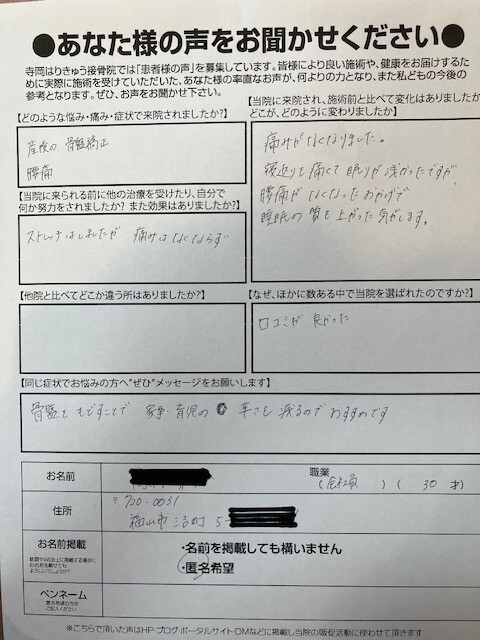 ●あなた様の声をお聞かせください●
寺岡はりきゅう接骨院では「患者様の声」を募集しています。皆様により良い施術や、健康をお届けするた
めに実際に施術を受けていただいた、あなた様の率直なお声が、何よりの力となり、また私どもの今後の
参考となります。ぜひ、お声をお聞かせ下さい。
【どのような悩み・痛み・症状で来院されましたか?】
産後の骨盤矯正
腰痛
【当院に来られる前に他の治療を受けたり、自分で
何か努力をされましたか? また効果はありましたか?】
ストレッチはしましたが 痛みはなくならず
【他院と比べてどこか違う所はありましたか?】
【当院に来院され、施術前と比べて変化はありましたか
どこが、どのように変わりましたか】
痛みがなくなりました。
寝返りも痛くて眠りが浅かったですが
腰痛がなくなったおかげで
睡眠の質も上がった気がします。
【なぜ、ほかに数ある中で当院を選ばれたのですか?】
口コミが良かった
【同じ症状でお悩みの方へ"ぜひ"メッセージをお願いします】
骨盤をもどすことで 家事・育児の 辛さも減るのでおすすめです
お名前
職業
(会社員 ) ( 30 才)
住所
〒720-0031
福山市 町 5-
お名前掲載
・名前を掲載しても構いません
・匿名希望
ペンネーム
匿名希望の方は
ご記入ください
※こちらで頂いた声はHP・ブログ・ポータルサイト・DMなどに掲載し当院の販促活動に使わせて頂きます